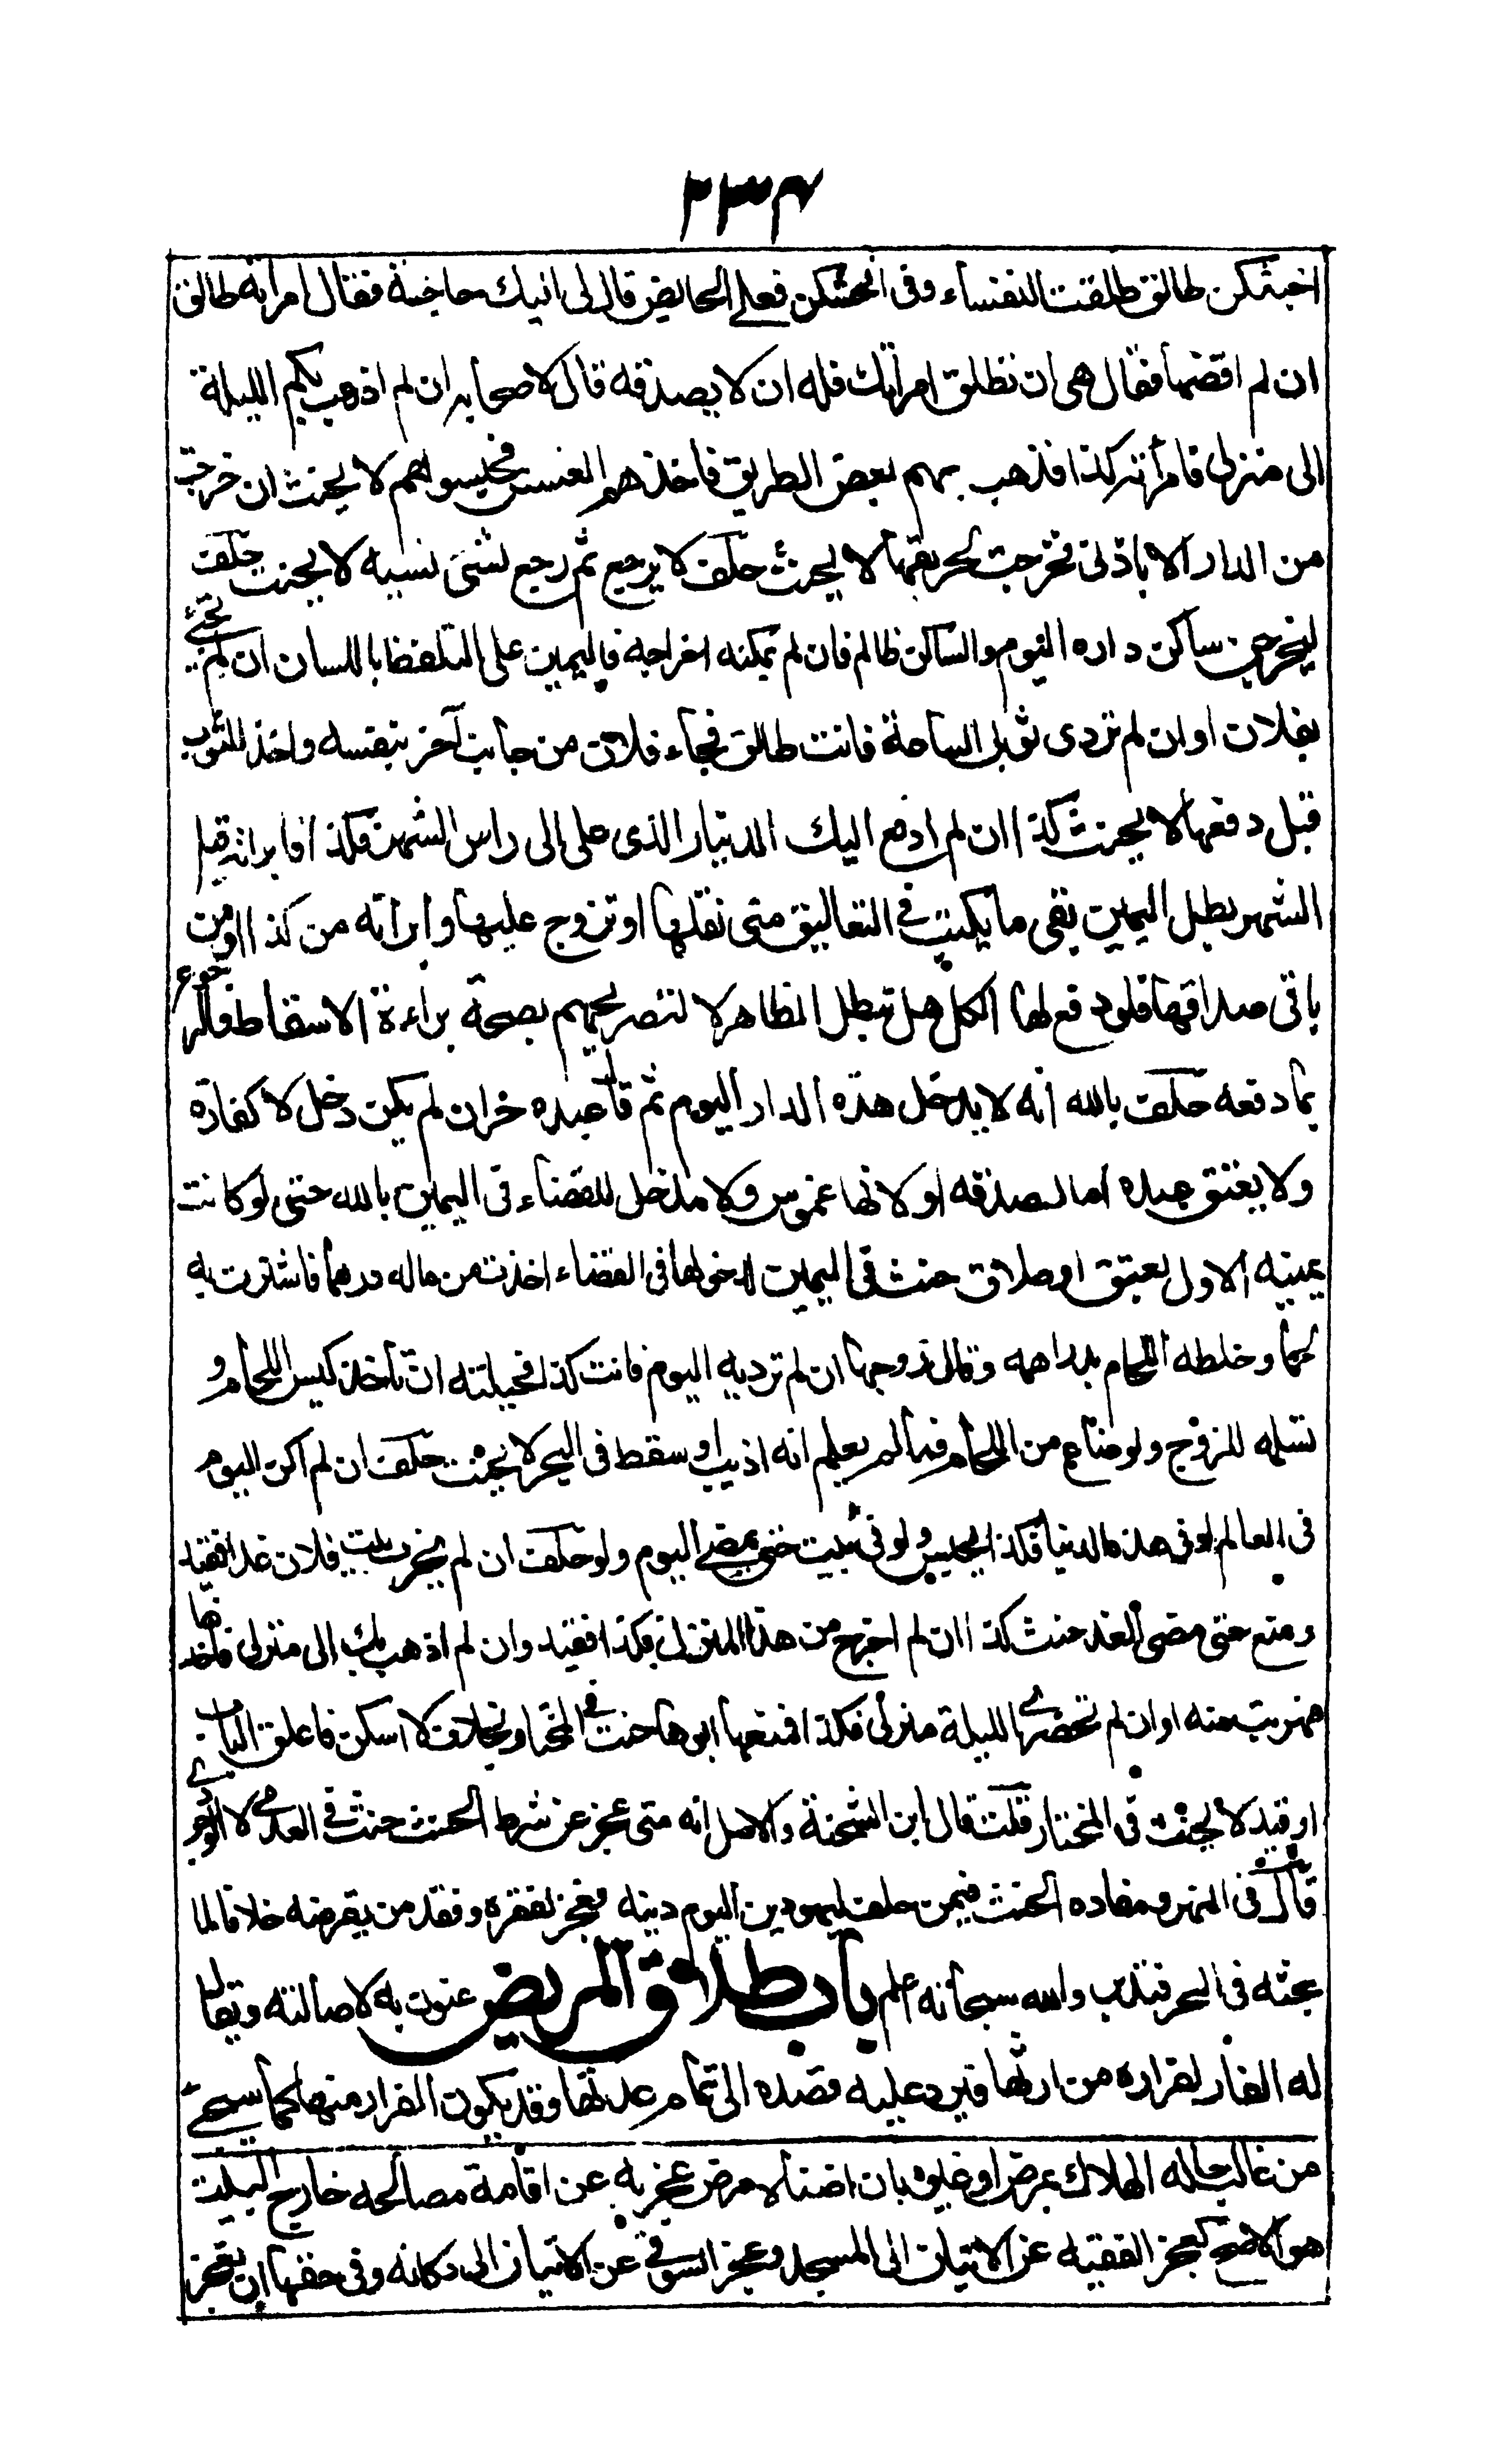 ٢٣٤
اخبثكن طالق طلقت النفساء وفى افحشكن فعلى الحايض قال لى اليك حاجة فقال امرأته طالق
ان لم اقضها فقال هى ان تطلق امرأتك فله ان لا يصدقه قال لاصحابه ان لم اذهب بكم الليلة
الى منزلى فامرأته كذا فذهب بهم بعض الطريق فاخذهم العسس فحبسوهم لا يحنث ان خرجت
من الدار الا باذنى فخرجت لحريقها لا يحنث حلف لا يرجع ثم رجع لشئ نسيه لا يحنث حلف
ليخرجن ساكن داره اليوم والساكن ظالم فان لم يمكنه اخراجه فاليمين على التلفظ باللسان ان لم تجئ
بفلان او ان لم تردى ثوبى الساعة فانت طالق فجاء فلان من جانب آخر بنفسه واخذ الثوب
قبل دفعها لا يحنث كذا ان لم ادفع اليك الدينار الذى على الى راس الشهر فكذا فابرأته قبل
الشهر بطل اليمين بقى ما يكتب فى التعاليق متى نقلها او تزوج عليها وابرأته من كذا او من
باقى صداقها فلو دفع لها الكل هل تبطل الظاهر لا لتصريحهم بصحة براءة الاسقاط والرجوع
بما دفعه حلف بالله انه لا يدخل هذه الدار اليوم ثم قال عبده حر ان لم يكن دخل لا كفارة
ولا يعتق عبده اما لصدقه او لانها غموس ولا مدخل للقضاء فى اليمين بالله حتى لو كانت
يمينه الاول بعتق او طلاق حنث فى اليمين لدخولها فى القضاء اخذت من ماله درهما فاشترت به
لحما وخلطه اللحام بدراهمه وقال زوجها ان لم ترديه اليوم فانت كذا فحيلته ان تأخذ كيس اللحام و
تسلمه للزوج ولو ضاع من اللحام فما لم يعلم انه اذيب او سقط فى البحر لا يحنث حلف ان لم اكن اليوم
فى العالم او فى هذه الدنيا فكذا يحبس ولو فى بيت حتى يمضى اليوم ولو حلف ان لم يخرب بيت فلان غدا فقيد
ومنع حتى مضى الغد حنث كذا ان لم اخرج من هذا المنزل فكذا فقيد وان لم اذهب بك الى منزلى فاخذها
فهربت منه او ان لم تحضرى الليلة منزلى فكذا فمنعها ابوها حنث فى المختار بخلاف لا اسكن فاغلق الباب
او قيد لا يحنث فى المختار قلت قال ابن الشحنة والاصل انه متى عجز عن شرط الحنث حنث فى العدمى لا الوجودى
قال فى النهر ومفاده الحنث فيمن حلف ليؤدين اليوم دينه فعجز لفقره وفقد من يقرضه خلافا لما
بحثه فى البحر فتدبر والله سبحانه اعلم باب طلاق المريض عنون به لاصالته ويقال
له الفار لفراره من ارثها فيرد عليه قصده الى تمام عدتها وقد يكون الفرار منها كما سيجئ
من غالب حاله الهلاك بمرض او غيره بان اضناه مرض عجز به عن اقامة مصالحه خارج البيت
هو الاصح كعجز الفقيه عن الاتيان الى المسجد وعجز السوقى عن الاتيان الى دكانه وفى حقها ان تعجز